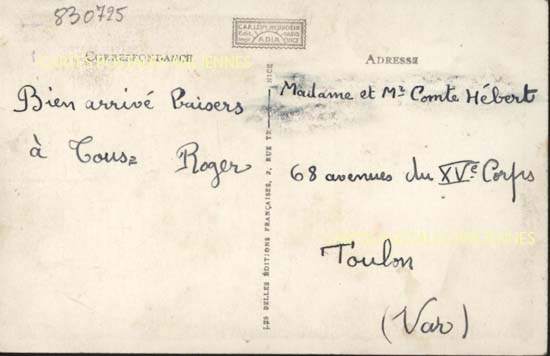 830725
CORRESPONDANCE
ADRESSE
CARTES POSTALES ANCIENNES
Bien arrivé baisers
à Tous. Roger
LES BELLES ÉDITIONS FRANÇAISES, 2, RUE NICE
Madame et Mr Comte Hébert
68 avenues du XVe Corps
CARTES POSTALES ANCIENNES
Toulon
(Var)